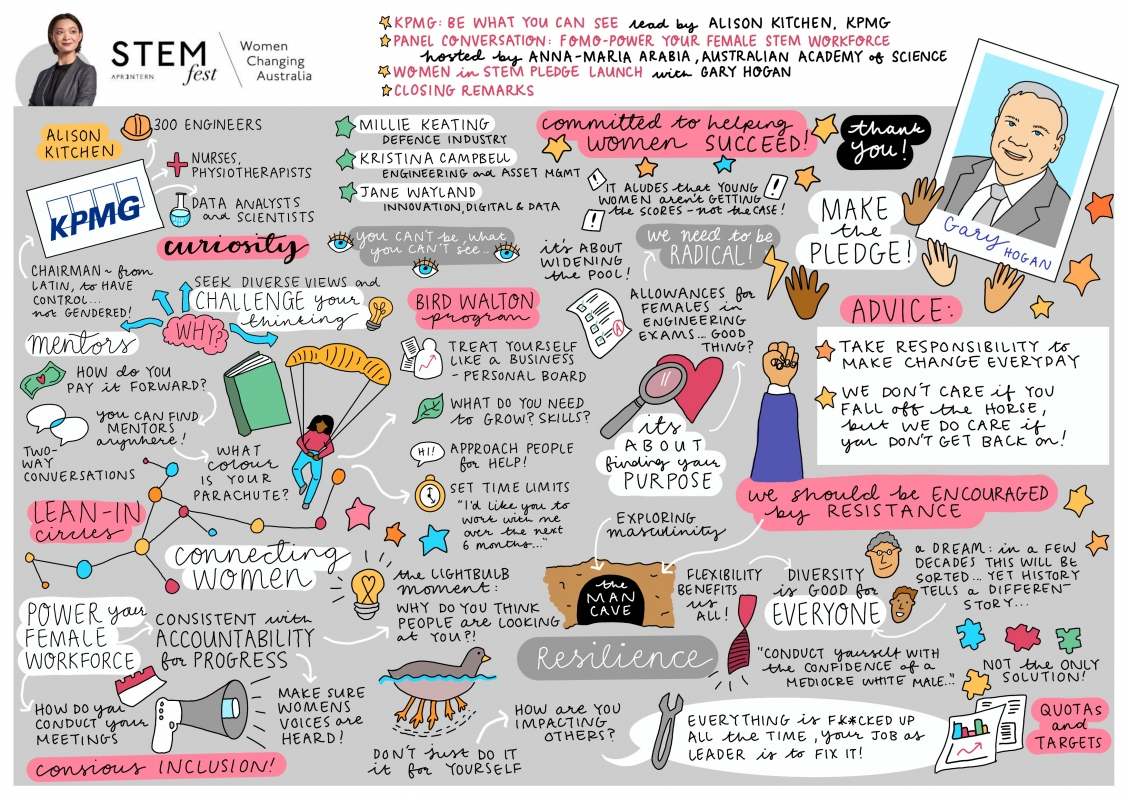 STEM
APR.INTERN
fest
Women
Changing
Australia
KPMG: BE WHAT YOU CAN SEE read by ALISON KITCHEN, KPMG
PANEL CONVERSATION: FOMO-POWER YOUR FEMALE STEM WORKFORCE
hosted by ANNA-MARIA ARABIA, AUSTRALIAN ACADEMY of SCIENCE
WOMEN in STEM PLEDGE LAUNCH with GARY HOGAN
CLOSING REMARKS
ALISON
KITCHEN
300 ENGINEERS
NURSES,
PHYSIOTHERAPISTS
DATA ANALYSTS
and SCIENTISTS
KPMG
CHAIRMAN ~ from
LATIN, to HAVE
CONTROL...
not GENDERED!
curiosity
MILLIE KEATING
DEFENCE INDUSTRY
KRISTINA CAMPBELL
ENGINEERING and ASSET MGMT
JANE WAYLAND
INNOVATION, DIGITAL & DATA
you CAN'T be, what
you CAN'T see...
SEEK DIVERSE VIEWS and
CHALLENGE your
thinking
WHY?
mentors
HOW do you
PAY it FORWARD?
you CAN FIND
MENTORS
anywhere!
TWO-
WAY
CONVERSATIONS
WHAT
colour
IS YOUR
PARACHUTE?
BIRD WALTON
program
TREAT YOURSELF
LIKE a BUSINESS
- PERSONAL BOARD
WHAT DO YOU NEED
to GROW? SKILLS?
HI!
APPROACH PEOPLE
for HELP!
SET TIME LIMITS
"I'd like you to
work with me
over the next
6 months..."
LEAN-IN
circles
connecting
WOMEN
POWER your
FEMALE
WORKFORCE
CONSISTENT with
ACCOUNTABILITY
for PROGRESS
HOW do you
CONDUCT your
MEETINGS
MAKE SURE
WOMENS
VOICES are
HEARD!
consious INCLUSION!
the LIGHTBULB
moment:
WHY DO YOU THINK
PEOPLE are LOOKING
at YOU?!
DON'T just DO IT
it for YOURSELF
HOW are YOU
IMPACTING
OTHERS?
committed to helping
women SUCCEED!
IT ALUDES that YOUNG
WOMEN aren't GETTING
the SCORES - not the CASE!
it's ABOUT
WIDENING
the POOL!
we need to be
RADICAL!
A
ALLOWANCES for
FEMALES in
ENGINEERING
EXAMS... GOOD
THING?
its
ABOUT
finding your
PURPOSE
thank
you!
MAKE
the
PLEDGE!
Gary
HOGAN
ADVICE:
TAKE RESPONSIBILITY to
MAKE CHANGE EVERYDAY
WE DON'T CARE if YOU
FALL off the HORSE,
but WE DO CARE if
you DON'T GET BACK on!
we should be ENCOURAGED
by RESISTANCE
EXPLORING
masculinity
the
MAN
CAVE
FLEXIBILITY
BENEFITS
us
ALL!
DIVERSITY
is GOOD for
EVERYONE
a DREAM: in a FEW
DECADES THIS WILL BE
SORTED... YET HISTORY
TELLS a DIFFERENT
STORY...
Resilience
"CONDUCT yourself WITH
the CONFIDENCE of a
MEDIOCRE WHITE MALE..."
NOT the ONLY
SOLUTION!
EVERYTHING is F**CKED UP
ALL the TIME, your JOB as
LEADER is to FIX IT!
QUOTAS
and
TARGETS